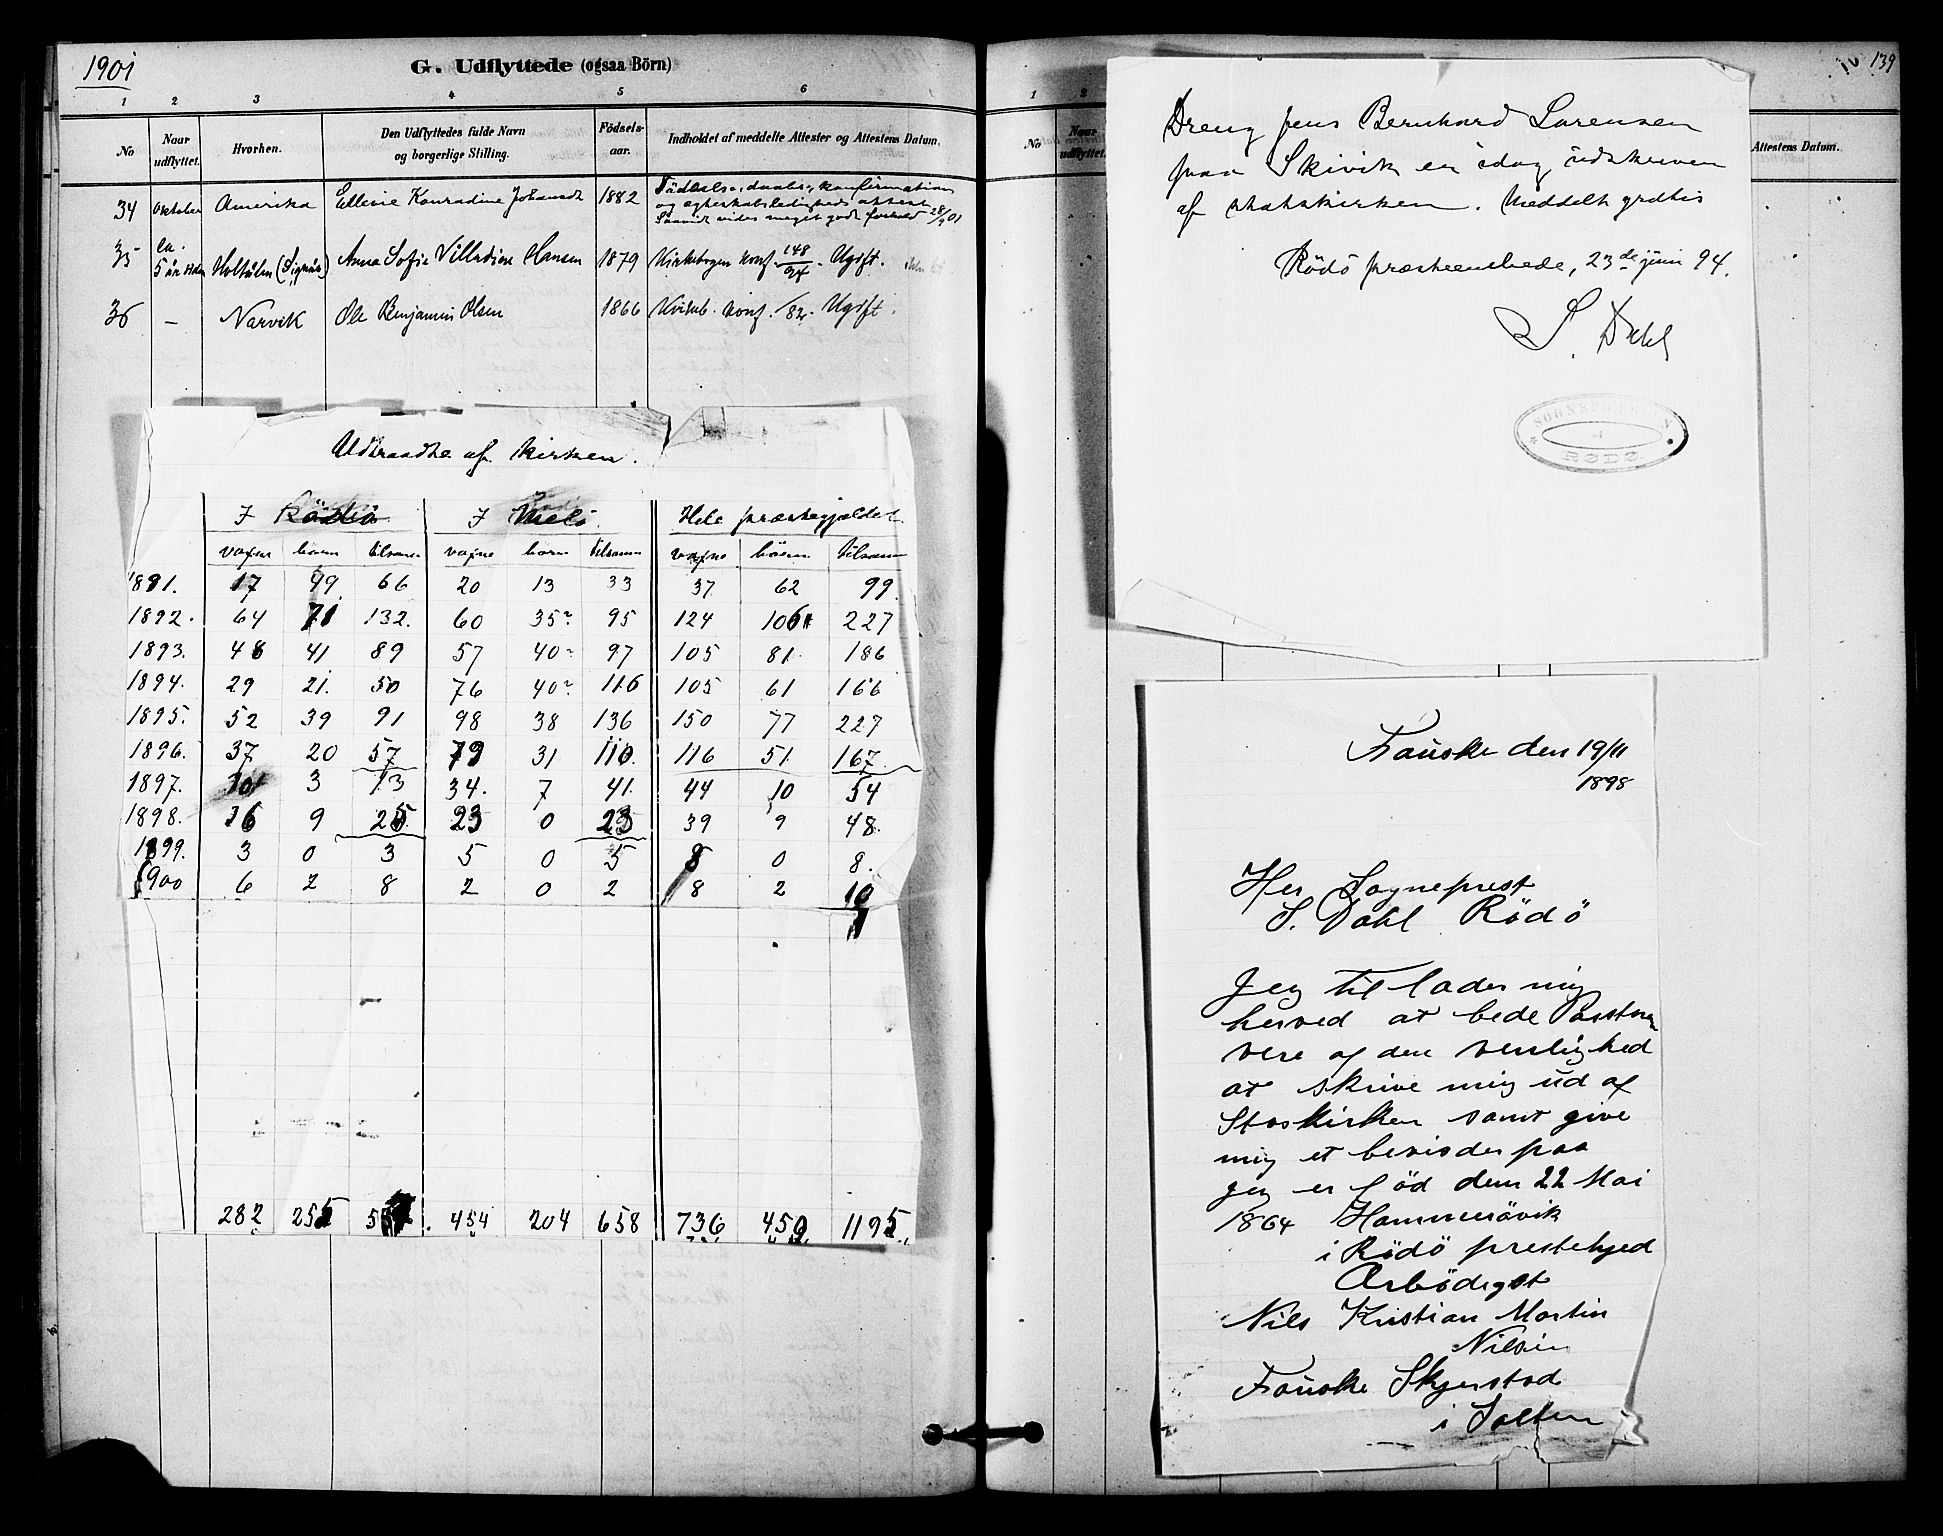 1901
G. Udflyttede (ogsaa Börn)
1 2 3 4 5 6
No Naar udflyttet. Hvorhen. Den Udflyttedes fulde Navn og borgerlige Stilling. Fødsels-aar. Indholdet af meddelte Attester og Attestens Datum.
34 Oktober Amerika Ellevie Konradine Johansdt 1882 Födsels-, daabs-, konfirmations
og ægteskabsledigheds attest
Saavidt vides meget godt forhold 28/9 01
35 ca. 5 år siden Holtålen (Signås) Anna Sofie Villadine Hansen 1879 Kirkebogen konf. 148/94. Ugift.
36 - Narvik Ole Benjamin Olsen 1866 Kirkeb. konf. /82. Ugift.
Udtraadte af kirken.
I Rödö I Melö. Hele præstegjældet
voxne börn tilsamm voxne börn tilsamm voxne börn tilsamm
1891. 17 49 66 20 13 33 37 62 99
1892. 64 71 132. 60 35 95 124 106 227
1893. 48 41 89 57 40 97 105 81 186
1894. 29 21. 50 76 40 116 105 61 166
1895. 52 39 91 98 38 136 150 77 227
1896. 37 20 57 79 31 110. 116 51 167
1897. 10 3 13 34. 7 41. 44 10 54
1898. 16 9 25 23 0 23 39 9 48.
1899. 3 0 3 5 0 5 8 0 8.
1900 6 2 8 2 0 2 8 2 10
282 255 454 204 658 736 459 1195
139
1 2
No Naar udflyttet.
Attestens Datum.
Dreng Jens Bernhard Lorensen
paa Skivik er idag udskreven
af statskirken. Meddelt gratis
Rödö præsteembede, 23de juni 94.
S. Dahl
SOGNEPRESTEN
i
RØDØ
Fauske den 19/11
1898
Her Sogneprest
S. Dahl Rödö
Jeg til lader mig
herved at bede Pastoren
vere af den venlighed
at skrive mig ud af
Stoskirken samt give
mig et bevisder paa
jeg er föd den 22 Mai
1864 Hammerövik
i Rödö prestehjed
Arbödigst
Nils Kristian Martin
Nilsen
Fauske Skjerstad
i Salten